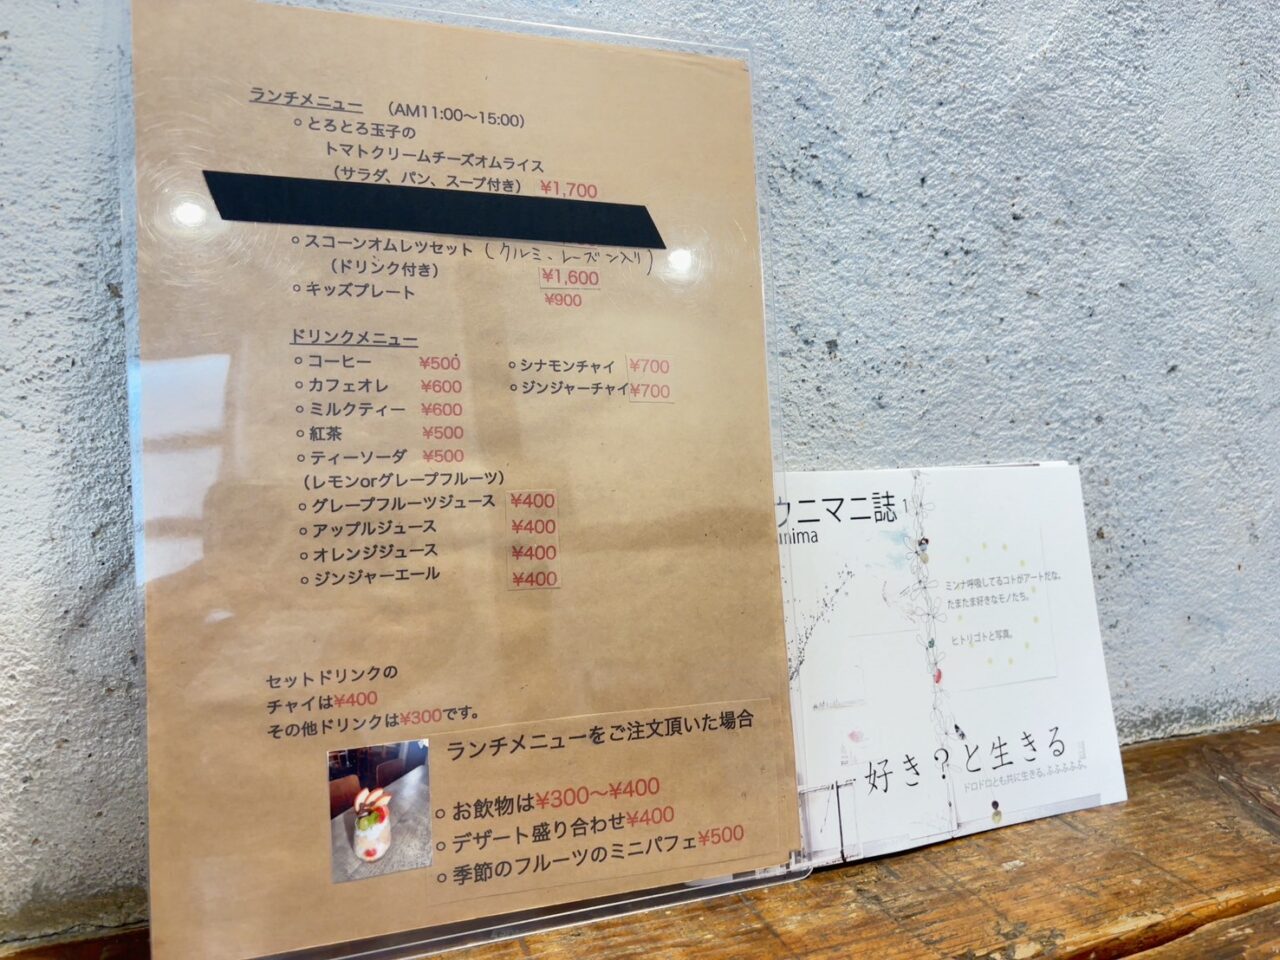 ランチメニュー　(AM11:00〜15:00)
○とろとろ玉子の
トマトクリームチーズオムライス
(サラダ、パン、スープ付き) ¥1,700
○スコーンオムレツセット (クルミ、レーズン入り)
(ドリンク付き) ¥1,600
○キッズプレート ¥900
ドリンクメニュー
○コーヒー ¥500
○カフェオレ ¥600
○ミルクティー ¥600
○紅茶 ¥500
○ティーソーダ ¥500
(レモンorグレープフルーツ)
○グレープフルーツジュース ¥400
○アップルジュース ¥400
○オレンジジュース ¥400
○ジンジャーエール ¥400
○シナモンチャイ ¥700
○ジンジャーチャイ ¥700
セットドリンクの
チャイは¥400
その他ドリンクは¥300です。
ランチメニューをご注文頂いた場合
○お飲物は¥300〜¥400
○デザート盛り合わせ¥400
○季節のフルーツのミニパフェ¥500
ウニマニ誌1
nima
ミンナ呼吸してるコトがアートだな。
たまたま好きなモノたち。
ヒトリゴトと写真。
好き?と生きる
ドロドロとも共に生きる。ふふふふふ。